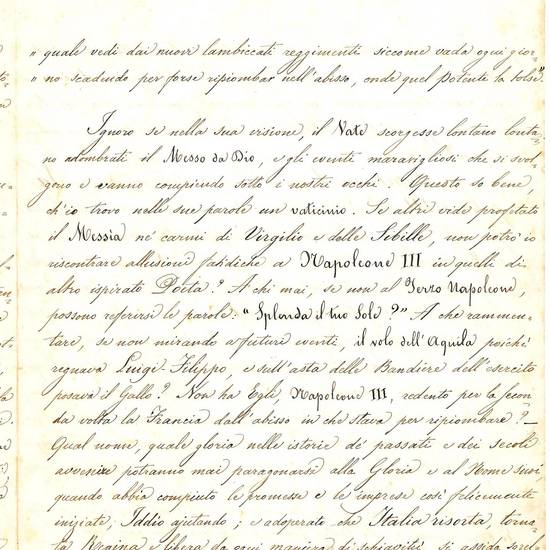 " quale vedi dai nuovi lambiccati reggimenti siccome vada ogni gior=
" no scadendo per forse ripiombar nell'abisso, onde quel Potente la tolse".
Ignoro se nella sua visione, il Vate scorgesse lontano lonta=
no adombrati il Messo da Dio, e gli eventi maravigliosi che si svol=
gono e vanno compiendo sotto i nostri occhi. Questo so bene,
ch'io trovo nelle sue parole un vaticinio. Se altri vide profetato
il Messia né carmi di Virgilio e delle Sibille, non potrò io
riscontrare allusioni fatidiche a Napoleone III in quelli di
altro ispirato Poeta? A chi mai, se non al Terzo Napoleone,
possono referirsi le parole: "Splenda il tuo Sole?" A che rammen=
tare, se non mirando a futuri eventi, il volo dell'Aquila poichè
regnava Luigi-Filippo, e sull'asta delle Bandiere dell'esercito
posava il Gallo? Non ha Egli, Napoleone III, redento per la secon
da volta la Francia dall'abisso in che stava per ripiombare? —
Qual nome, quale gloria nelle istorie de' passati e dei secoli
avvenire potranno mai paragonarsi alla Gloria e al Nome suoi,
quando abbia compiuto le promesse e le imprese così felicemente
iniziate, Iddio ajutando; e adoperato che Italia risorta, torna
ta Regina e libera da ogni maniera di schiavitù, si assida